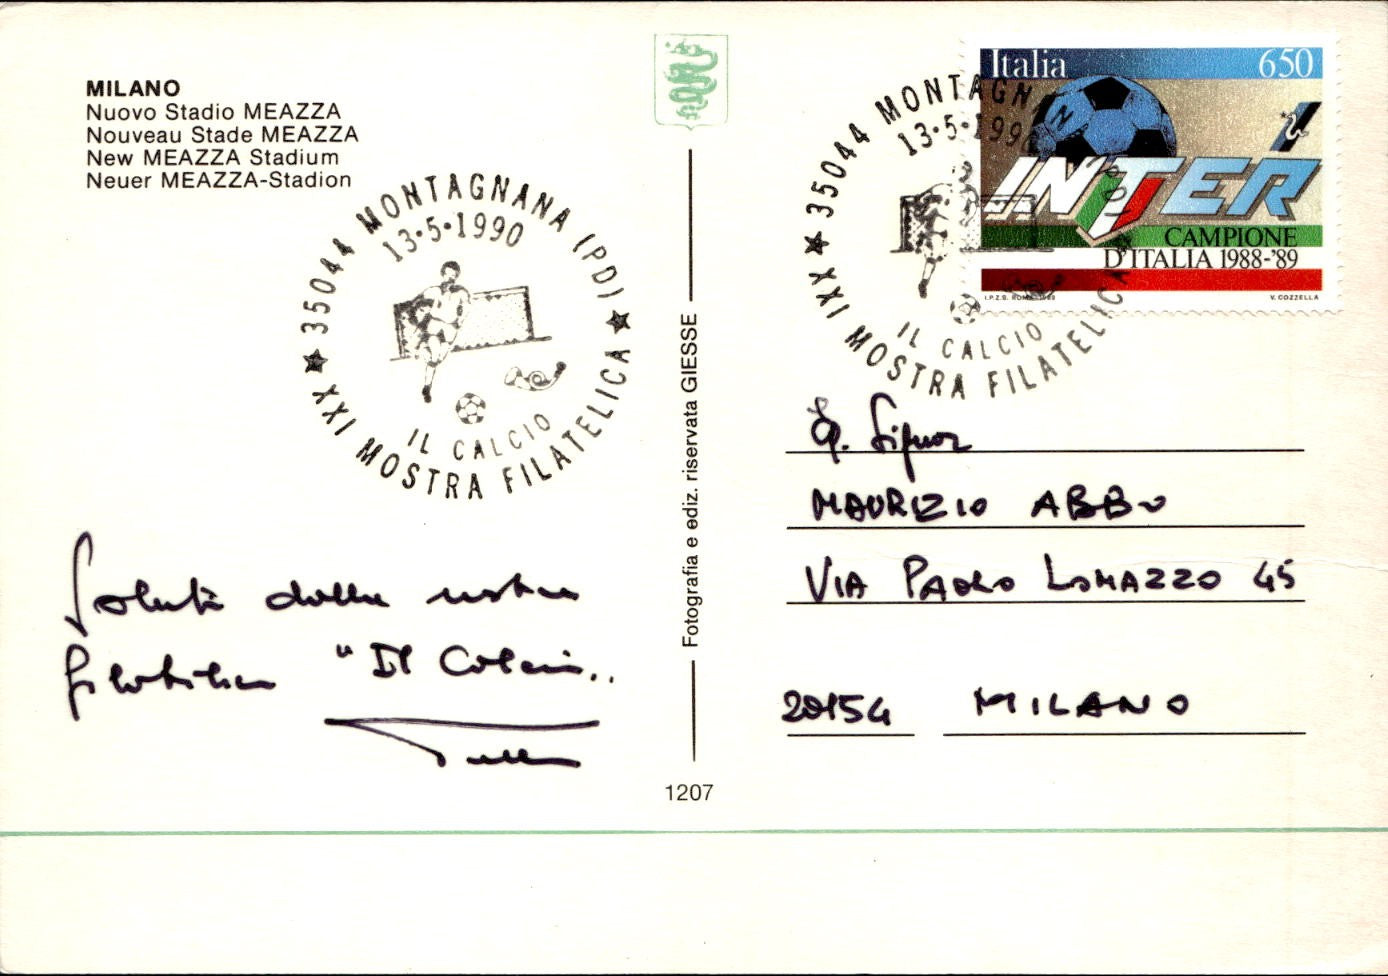 MILANO
Nuovo Stadio MEAZZA
Nouveau Stade MEAZZA
New MEAZZA Stadium
Neuer MEAZZA-Stadion
★ 35044 MONTAGNANA (PD) ★
13·5·1990
IL CALCIO
XXI MOSTRA FILATELICA
Saluti dalla mostra
filatelica "Il Calcio"
Fotografia e ediz. riservata GIESSE
1207
Italia 650
INTER
CAMPIONE
D'ITALIA 1988-'89
I.P.Z.S. ROMA 1989 V. COZZELLA
★ 35044 MONTAGNAN
13·5·1990
IL CALCIO
XXI MOSTRA FILATELICA
Signor
MAURIZIO ABBO
VIA PAOLO LOMAZZO 45
20154 MILANO